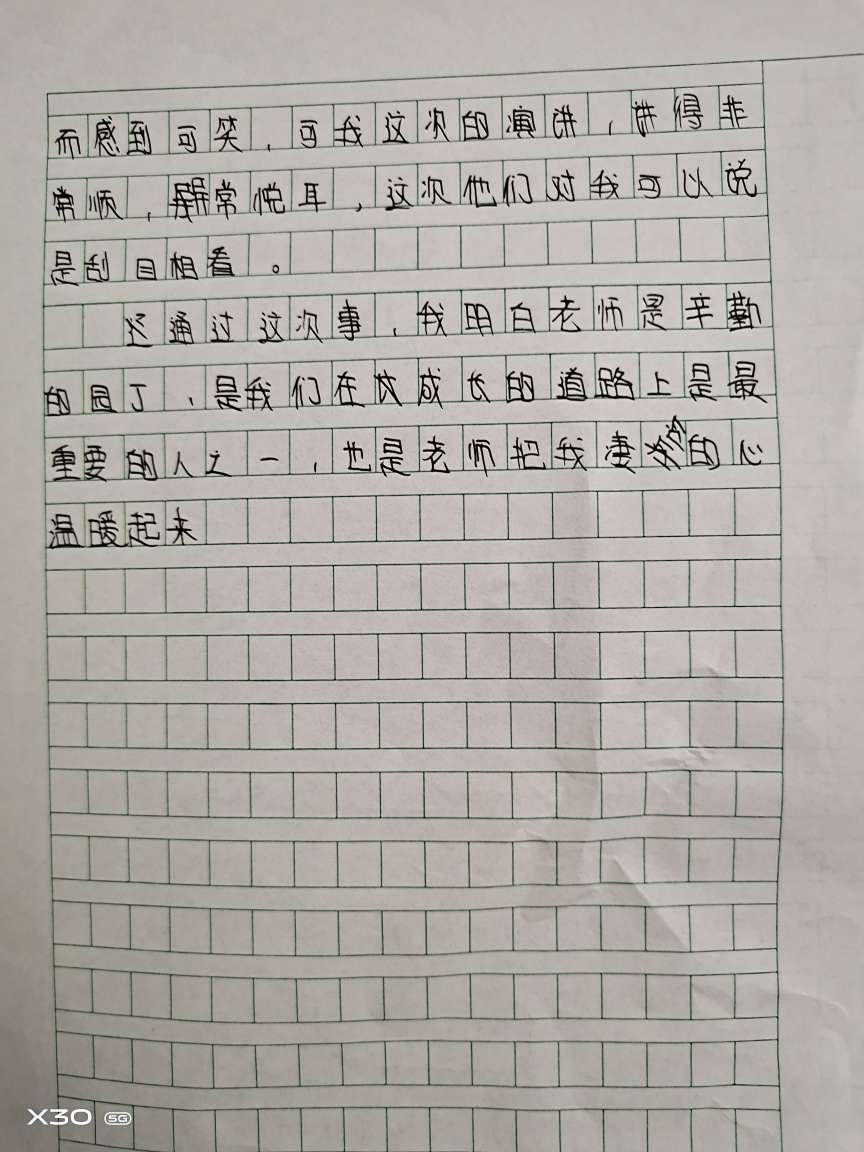 而感到可笑，可我这次的演讲，讲得非
常顺，异常悦耳，这次他们对我可以说
是刮目相看。
通过这次事，我明白老师是辛勤
的园丁，是我们在成长的道路上是最
重要的人之一，也是老师把我凄冷的心
温暖起来
X30 5G